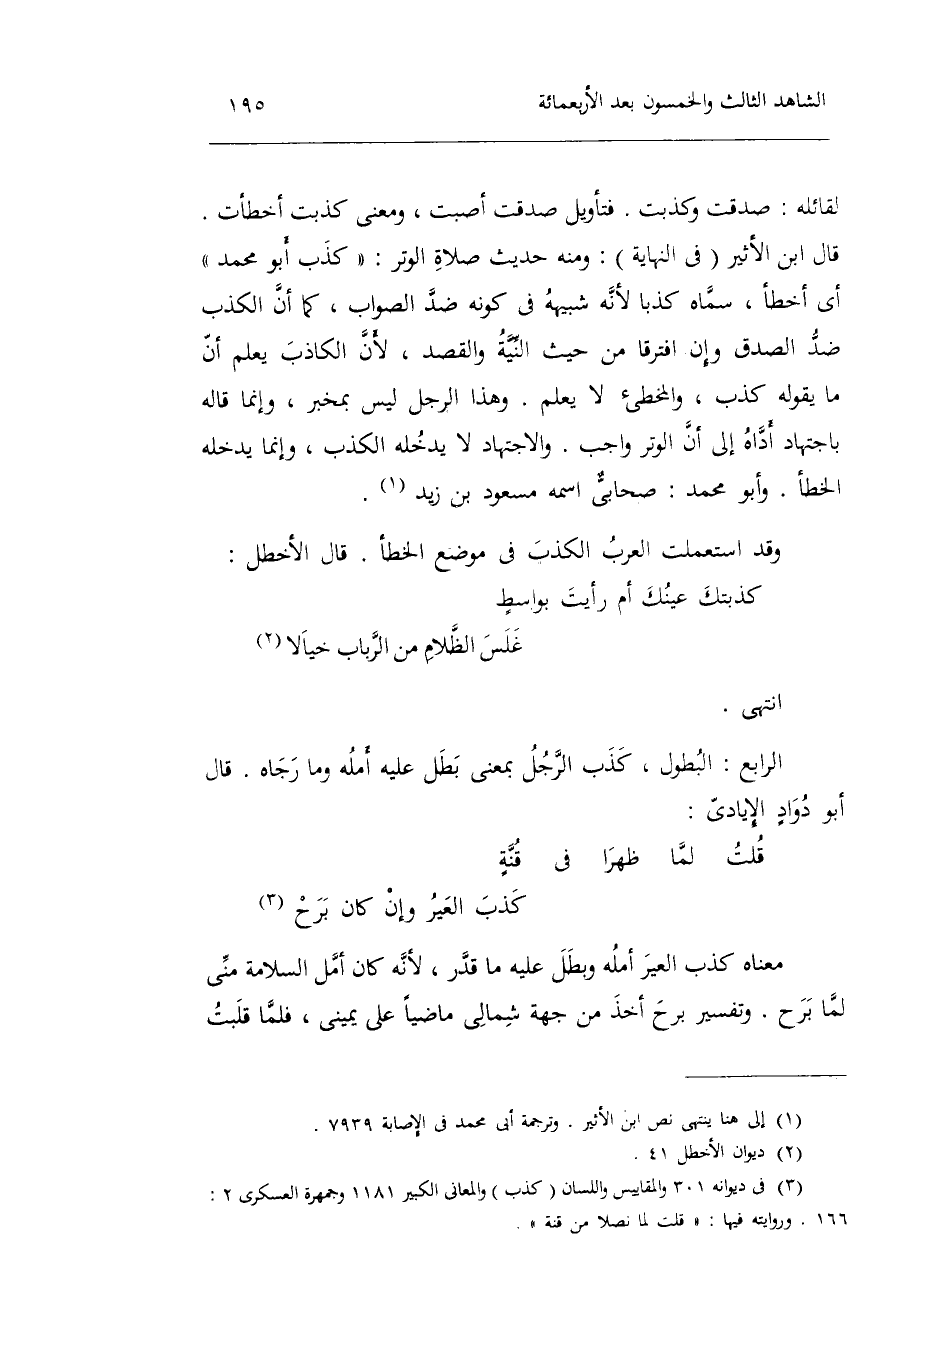 الشاهد الثالث والخمسون بعد الأربعمائة ١٩٥
لقائله : صدقت وكذبت . فتأويل صدقت أصبت ، ومعنى كذبت أخطأت .
قال ابن الأثير ( فى النهاية ) : ومنه حديث صلاةِ الوتر : « كذَب أَبو محمد »
أى أخطأ ، سمَّاه كذبا لأنَّه شبيههُ فى كونه ضدَّ الصواب ، كما أنَّ الكذب
ضدُّ الصدق وإن افترقا من حيث النِّيَّة والقصد ، لأَنَّ الكاذبَ يعلم أنّ
ما يقوله كذب ، والمخطىء لا يعلم . وهذا الرجل ليس بمخبر ، وإنما قاله
باجتهاد أَدَّاهُ إلى أنَّ الوتر واجب . والاجتهاد لا يدخُله الكذب ، وإنما يدخله
الخطأ . وأبو محمد : صحابىٌّ اسمه مسعود بن زيد (١) .
وقد استعملت العربُ الكذبَ فى موضع الخطأ . قال الأخطل :
كذبتكَ عينُكَ أم رأيتَ بواسطٍ
غَلَسَ الظَّلامِ من الرَّباب خيالَا (٢)
انتهى .
الرابع : البُطول ، كَذَب الرَّجُلُ بمعنى بَطَل عليه أَملُه وما رَجَاه . قال
أبو دُوَادٍ الإِيادىّ :
قُلتُ لمَّا ظهرَا فى قُنَّةٍ
كَذبَ العَيرُ وإنْ كان بَرَحْ (٣)
معناه كذب العيرَ أملُه وبطَلَ عليه ما قدَّر ، لأنَّه كان أمَّل السلامة منِّى
لمَّا بَرَح . وتفسير برحَ أخذَ من جهة شِمالِى ماضياً على يمينى ، فلمَّا قلَبتُ
(١) إلى هنا ينتهى نص ابن الأثير . وترجمة أبى محمد فى الإصابة ٧٩٣٩ .
(٢) ديوان الأخطل ٤١ .
(٣) فى ديوانه ٣٠١ والمقاييس واللسان ( كذب ) والمعانى الكبير ١١٨١ وجمهرة العسكرى ٢ :
١٦٦ . وروايته فيها : « قلت لما نصلا من قنة » .